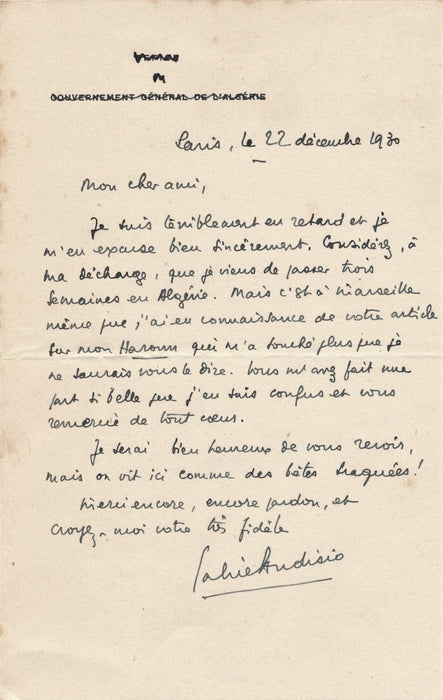 DU
GOUVERNEMENT GÉNÉRAL DE L'ALGÉRIE
Paris, le 22 décembre 1930
Mon cher ami,
Je suis terriblement en retard et je
m'en excuse bien sincèrement. Considérez, à
ma décharge, que je viens de passer trois
semaines en Algérie. Mais c'est à Marseille
même que j'ai eu connaissance de votre article
sur mon Haroun qui m'a touché plus que je
ne saurais vous le dire. Vous m'avez fait une
part si belle que j'en suis confus et vous
remercie de tout cœur.
Je serai bien heureux de vous revoir,
mais on vit ici comme des bêtes traquées !
Merci encore, encore pardon, et
croyez-moi votre très fidèle
Gabriel Audisio